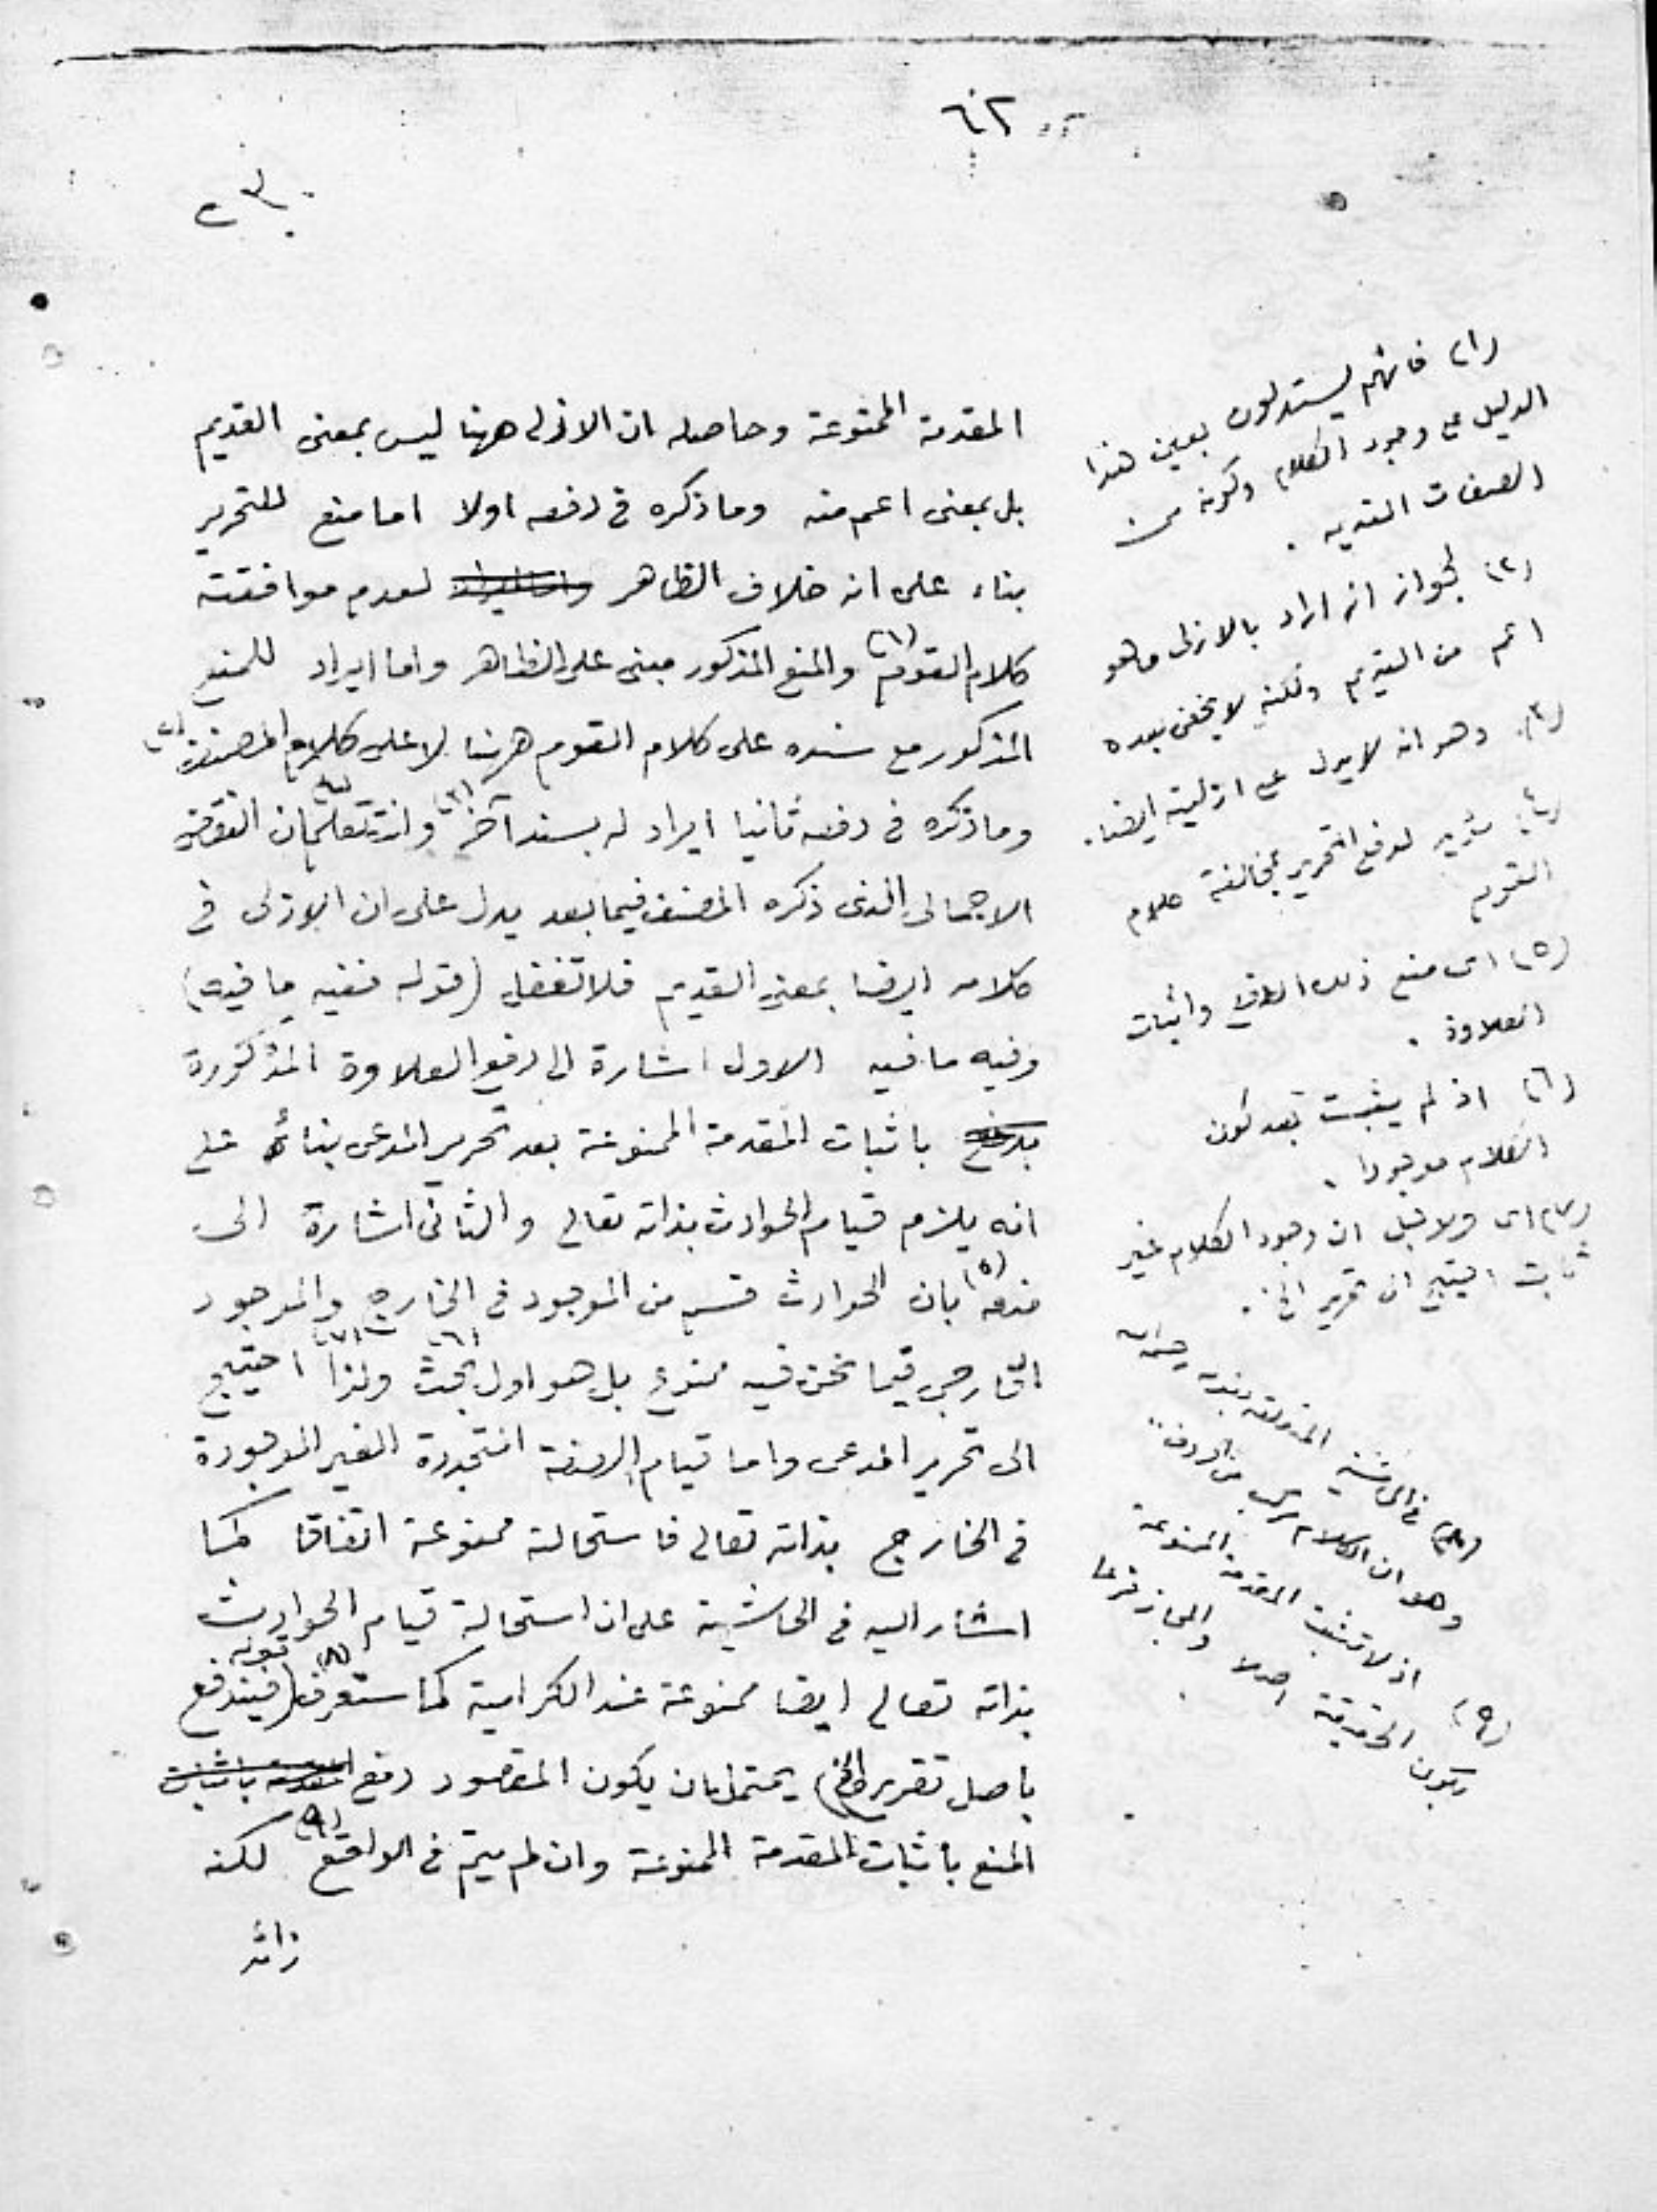 ٦٢
المقدمة الممنوعة وحاصله ان الازلى ههنا ليس بمعنى القديم
بل بمعنى اعم منه وما ذكره فى دفعه اولا اما منع للتحرير
بناء على انه خلاف الظاهر لعدم موافقته
كلام القوم (١) والمنع المذكور مبنى على الظاهر واما ايراد للمنع
المذكور مع سنده على كلام القوم ههنا لا على كلام المصنف (٢)
وما ذكره فى دفعه ثانيا ايراد له بسند آخر (٣) وانت تعلم (٤) ان النقض
الاجمالى الذى ذكره المصنف فيما بعد يدل على ان الازلى فى
كلامه ايضا بمعنى القديم فلا تغفل (قوله ففيه ما فيه)
وفيه ما فيه الاول اشارة الى دفع العلاوة المذكورة
باثبات المقدمة الممنوعة بعد تحرير المدعى بناءً على
انه يلزم قيام الحوادث بذاته تعالى والثانى اشارة الى
منعه (٥) بان الحوادث قسم من الموجود فى الخارج والموجود
الخارجى فيما نحن فيه ممنوع بل هو اول البحث (٦) ولذا (٧) احتيج
الى تحرير المدعى واما قيام الصفة المتجددة الغير الموجودة
فى الخارج بذاته تعالى فاستحالته ممنوعة اتفاقا كما
اشار اليه فى الحاشية على ان استحالة قيام الحوادث
بذاته تعالى ايضا ممنوعة عند الكرامية كما ستعرف (٨) (قوله فيندفع
باصل تقرير الخ) يحتمل ان يكون المقصود دفع
المنع باثبات المقدمة الممنوعة وان لم يتم فى الواقع (٩) لكنه
زائد
(١) فانهم يستدلون بعين هذا
الدليل على وجود الكلام وكونه من
الصفات القديمه .
(٢) لجواز انه اراد بالازلى ما هو
اعم من القديم ولكنه لا يخفى بعده
(٣) وهو انه لا يدل على ازليته ايضا .
(٤) لدفع التحرير بمخالفة كلام
القوم
(٥) اى منع ذلك الدفع واثبات
العلاوة .
(٦) اذ لم يثبت بعد كون
الكلام موجودا .
(٧) اى ولاجل ان وجود الكلام غير
ثابت احتيج الى تحرير الخ .
(٨) فى الحاشية
وهو ان الكلام مركب من الحروف
(٩) اذ لا تثبت المقدمة الممنوعة
الحقيقة اصلا والمجاز فرعا